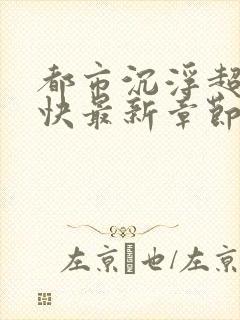 都市沉浮超
快最新章节
左京 也/左京